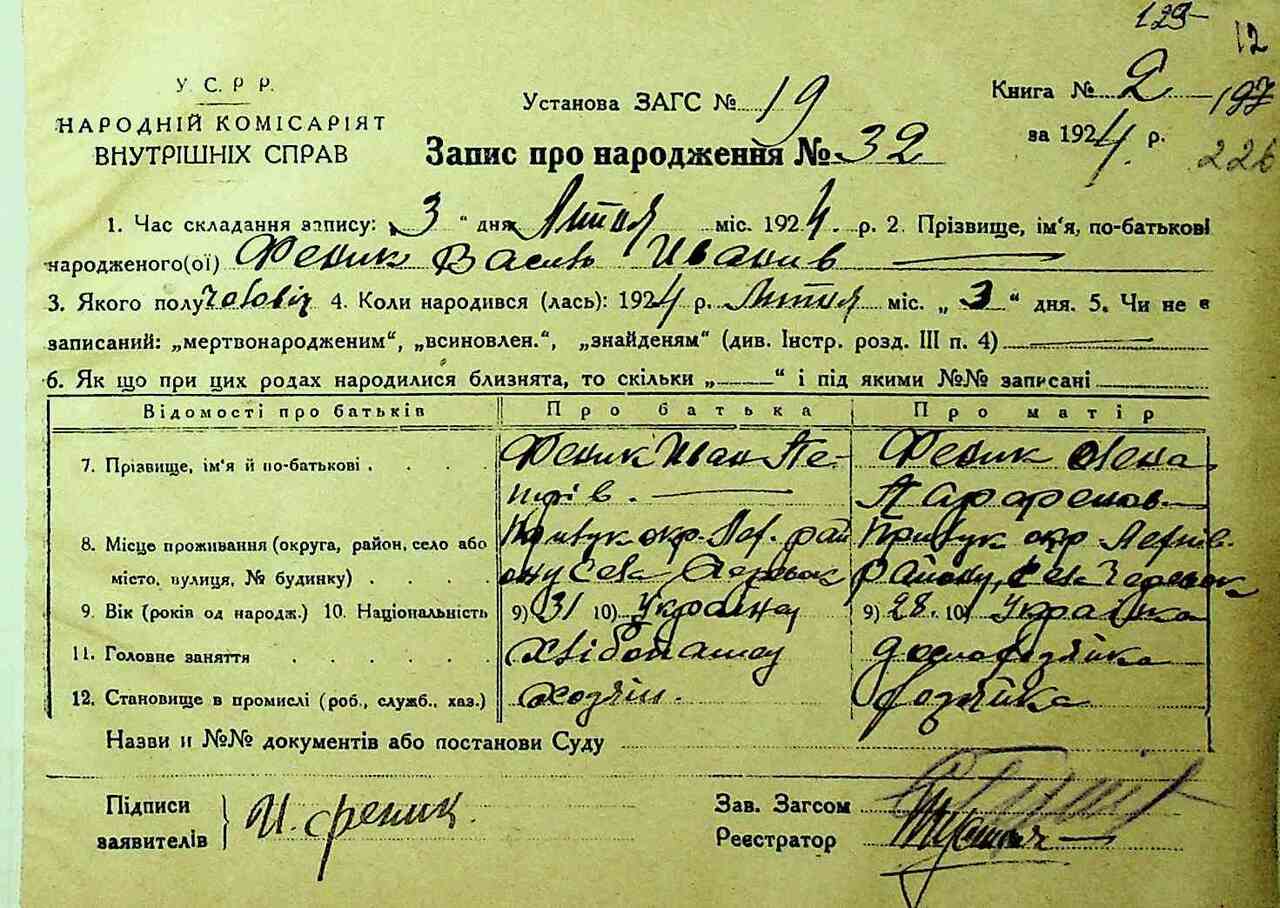 129
12
У. С. Р. Р.
НАРОДНІЙ КОМІСАРІЯТ
ВНУТРІШНІХ СПРАВ
Установа ЗАГС № 19
Книга № 2
197
за 1924 р.
226
Запис про народження № 32
1. Час складання запису: „3“ дня Лютня міс. 1924 р. 2. Прізвище, ім‘я, по-батькові
народженого(ої) Феник Василь Иванів
3. Якого полу чоловіч 4. Коли народився (лась): 1924 р. Лютня міс. „3“ дня. 5. Чи не є
записаний: „мертвонародженим“, „всиновлен.“, „знайденям“ (див. Інстр. розд. III п. 4)
6. Як що при цих родах народилися близнята, то скільки „——“ і під якими №№ записані
Відомості про батьків Про батька Про матір
7. Прізвище, ім‘я й по-батькові . . . . Феник Иван Пе- Феник Олена
трів. Парфенов
8. Місце проживання (округа, район, село або Прилук окр. рай Прилук окр
місто, вулиця, № будинку) . . . . ону села району, села
9. Вік (років од народж.) 10. Національність 9) 31 10) Украінец 9) 28. 10) Украінка
11. Головне заняття . . . . . Хліборобство домохозяйка
12. Становище в промислі (роб., служб., хаз.) хозяін. хозяйка
Назви и №№ документів або постанови Суду
Підписи
заявителів } И. Феник
Зав. Загсом
Реєстратор